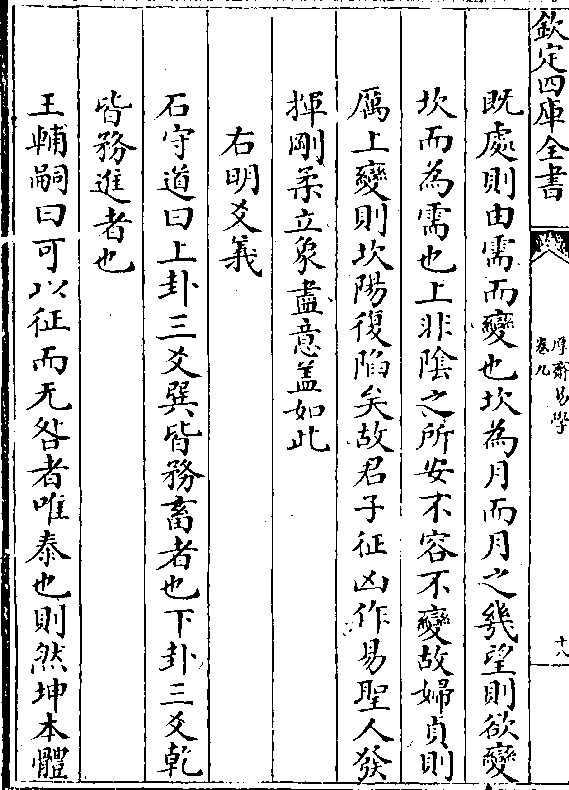 欽定四庫全書
厚齋易學
卷九
十八
既處則由需而變也坎為月而月之幾望則欲變
坎而為需也上非陰之所安不容不變故婦貞則
厲上變則坎陽復陷矣故君子征凶作易聖人發
揮剛柔立象盡意蓋如此
右明爻義
石守道曰上卦三爻巽皆務畜者也下卦三爻乾
皆務進者也
王輔嗣曰可以征而无咎者唯泰也則然坤本體